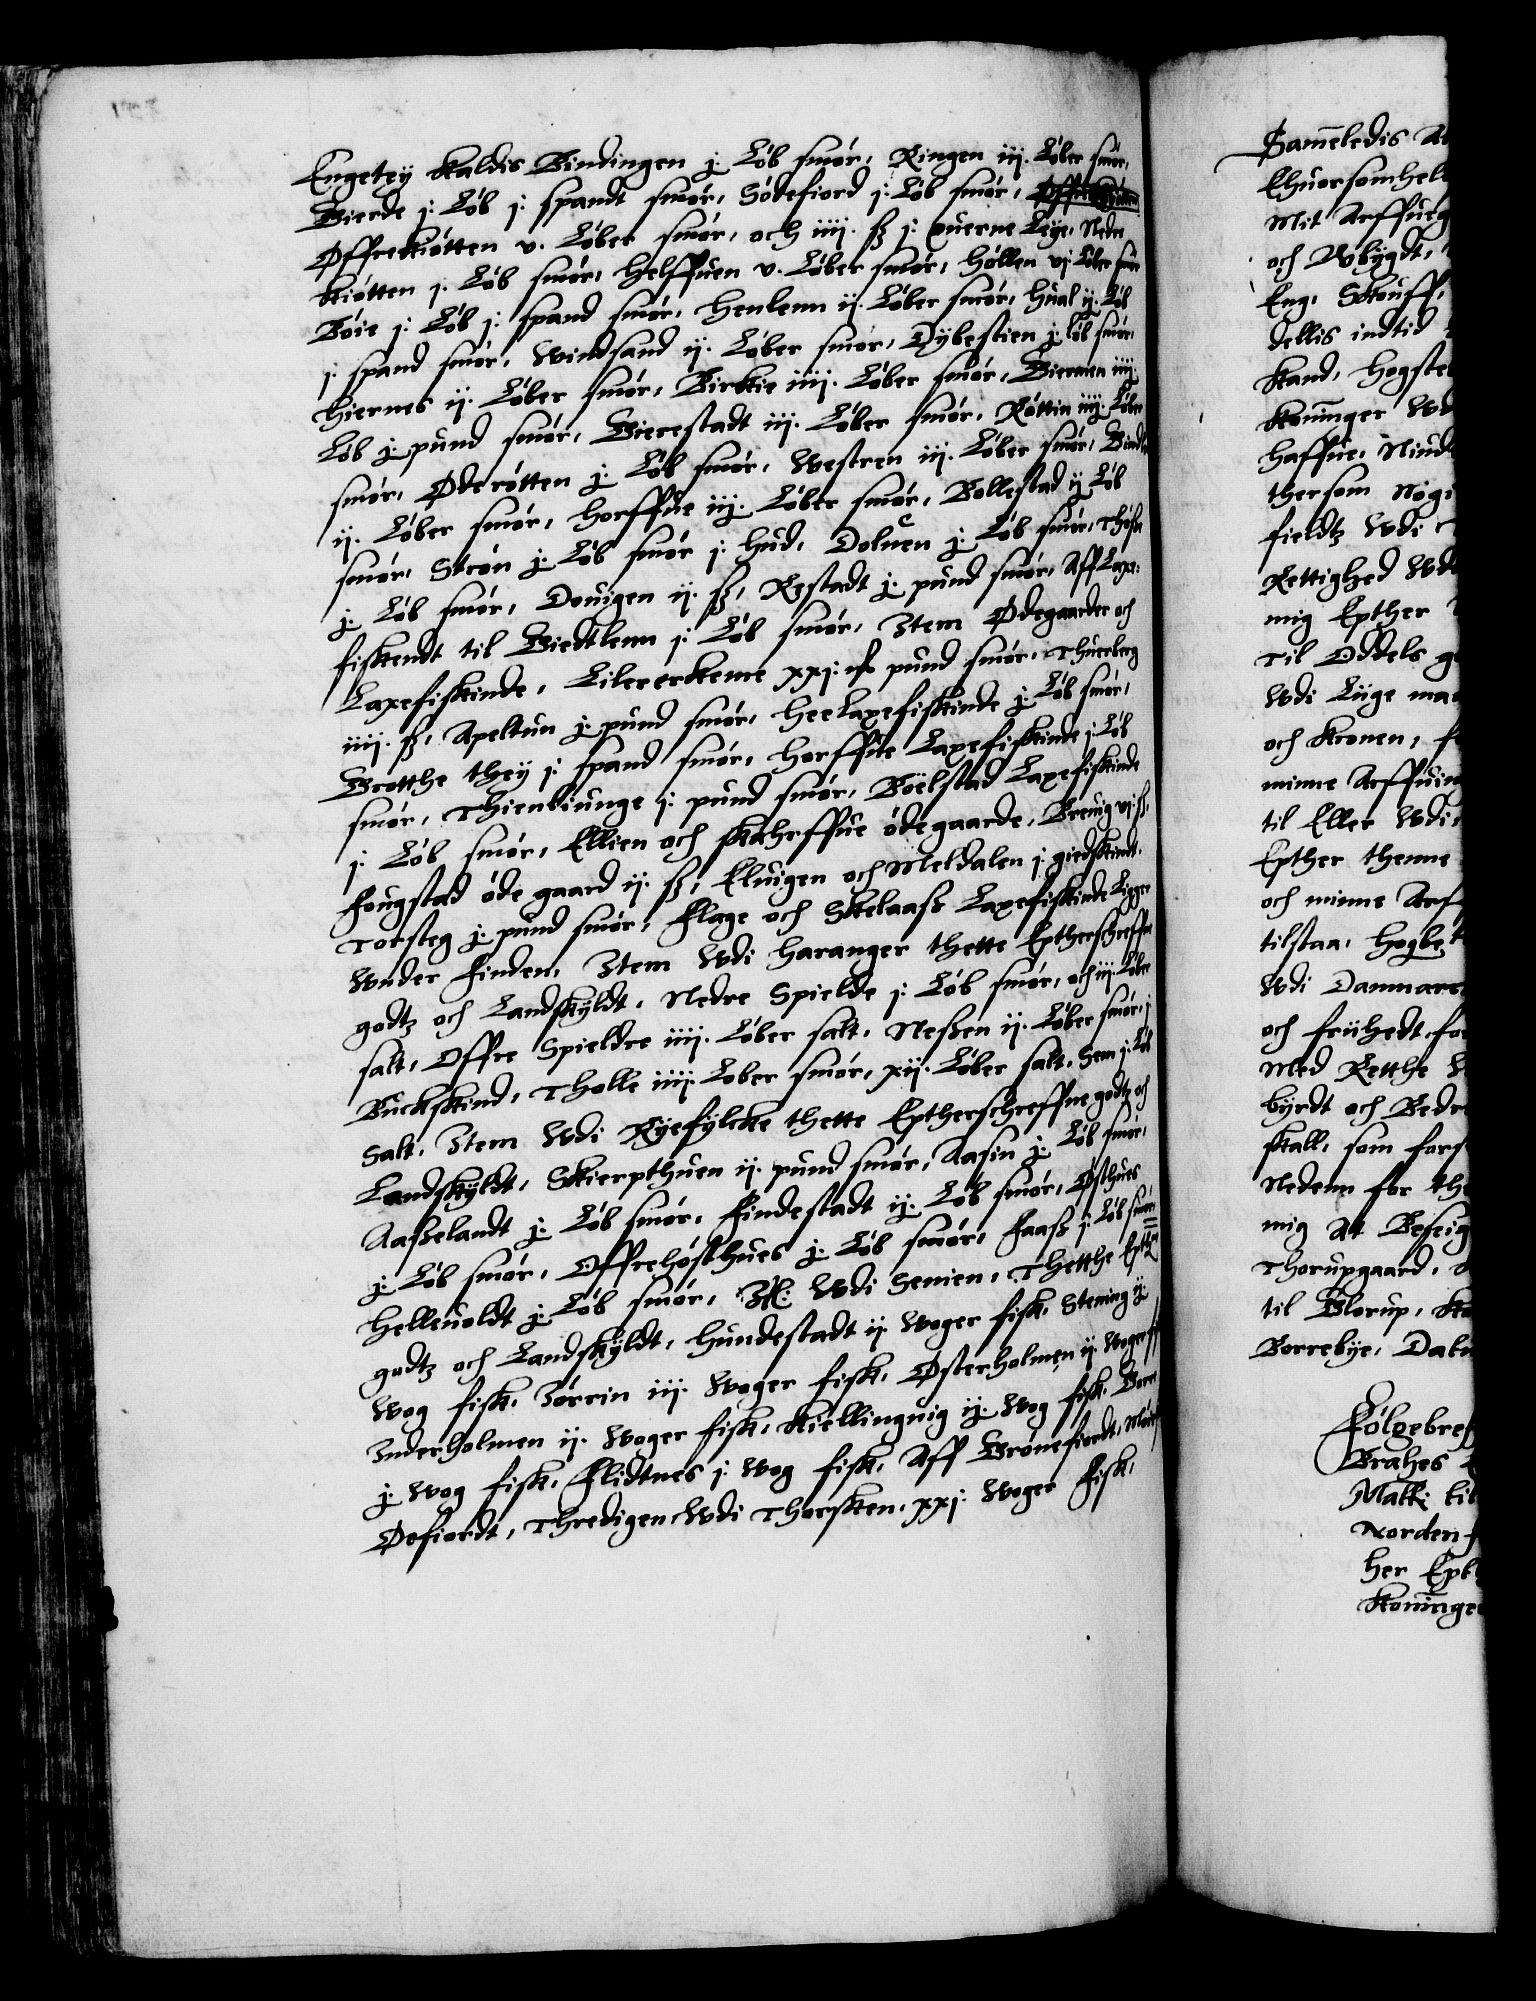 Engetey kaldis Bindingen j. Løb smør, Ringen iij. Løber smør,
Bierde j. Løb j. spandt smør, Sødefiord j. Løb smør,
Øffrekiøtten v. Løber smør, och iiij. ß j. querne Leye, Nedre
kiøtten j. Løb smør, helffuen v. Løber smør, høllen vj Løber smør
Bøie j. Løb j. spand smør, Henlenn ij. Løber smør, hual ij. Løb
j. spand smør, Windsand ij. Løber smør, Dybestien j. løb smør,
Hiernes ij. Løber smør, Birkie iiij. Løber smør, Biermen iiij.
Løb j. pund smør, Bierestadt iij. Løber smør, Røttin iiij. Løber
smør, Øderøtten j. Løb smør, Westren iij. Løber smør,
ij. Løber smør, Horffue iij. Løber smør, Bollestad ij Løb
smør, Strøn j. Løb smør j. Hud, Doluen j. Løb smør,
j. Løb smør, Douigen ij. ß, Restadt j. pund smør, Aff Laxe,
fiskendt til Biedtlenn j. Løb smør, Item Ødegaarder och
Laxefiskinde, Lilererkeme xxj. pund smør, Thuerberg
iiij. ß, Apeltun j. pund smør, hee Laxefiskinde j. Løb smør,
Brotthe they j. spand smør, Horffue Laxefiskinde j. Løb
smør, Thienbiunge j. pund smør, Boëlstad Laxefiskinde
j. Løb smør, Ellien och skahrffue ødegaarde, Breuig vj ß,
Fougstad øde gaard ij. ß, Eluigen och Meldalen j. giedskindt.
Torsteg j. pund smør, Flage och Skelaaß Laxefiskinde Ligge
Wnder Finden, Item Wdi Haranger thette Eptherschreffne
godtz och Landskyldt, Nedre Spielde j. Løb smør, och iij. Løber
salt, Offre Spieldre iiij. Løber salt, Neßen ij. Løber smør, j
Buckskind, Tholle iiij. Løber smør, xij. Løber salt, Sem j. Løb
Salt, Item Wdi Ryefylcke thette Eptherschreffne godtz och
Landskyldt, Skierpthuen ij. pund smør, Aasin j. Løb smør,
Aaßelandt j. Løb smør, Findestadt ij. Løb smør, Østhues
j. Løb smør, Offrehøsthues j. Løb smør, Faaß j. Løb smør,
Helleuoldt j. Løb smør, It: Wdi Senien, Thetthe Epthr
godtz och Landskyldt, Hundestadt ij Woger fisk, Stening ij
Wog fisk, Iørrin iij. Woger fisk, Østerholmen ij Woger
Inderholmen ij. Woger fisk, kiellinguig ij. Wog fisk,
j. Wog fisk, Flidtnes j. Wog fisk, Aff Brønefiordt,
Øefiordt, Thredigen, Wdi Thorsken, xxj. Woger Fisk,

Sam̄eledis
Ehuorsomhel
Mit Arffueg
och Wbygdt,
Eng, Skouff,
dellis indtid
stand, hogste
koninger Wd
haffue, Nind
thersom Nogi
fieldtz Wdi
Rettighed Wd
mig Epther
Til Oddels g
Wdi Liige ma
och kronen,
minne Arffuin
til Eller Wdi
Epther thenne
och minne Arf
tilstaa, Hogbe
Wdi Danmarc
och friihedt,
Med Retthe
byrdt och Bedr
skall, som fors
Nedenn for th
mig At Beseig
Thorupgaard,
til Blorup,
Borrebye,

Følgebreff
Brahes
Malki til
Norden
her Epth
koninge